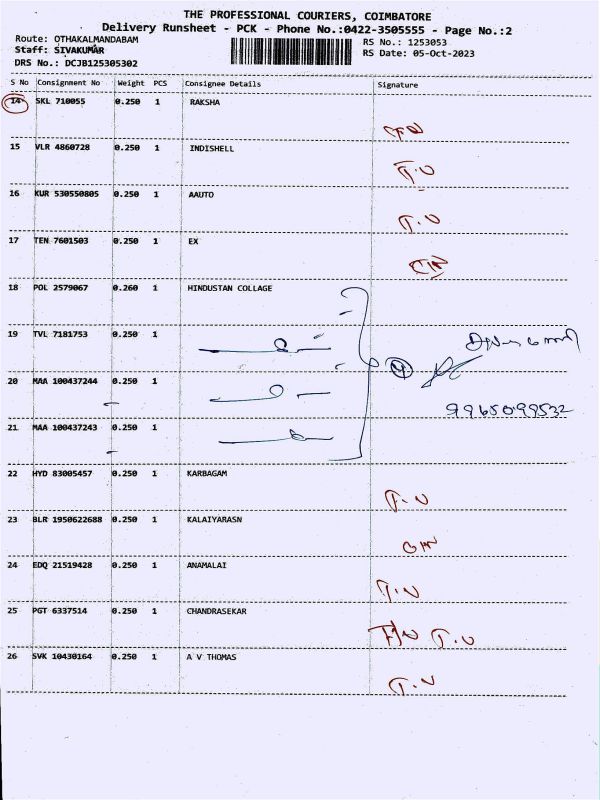 THE PROFESSIONAL COURIERS, COIMBATORE
Delivery Runsheet - PCK - Phone No.:0422-3505555 - Page No.:2
Route: OTHAKALMANDABAM
RS No.: 1253053
Staff: SIVAKUMAR
RS Date: 05-Oct-2023
DRS No.: DCJB125305302
S No Consignment No Weight PCS Consignee Details Signature
14 SKL 710055 0.250 1 RAKSHA
15 VLR 4860728 0.250 1 INDISHELL
T.U
16 KUR 530550805 0.250 1 AAUTO
T.U
17 TEN 7601503 0.250 1 EX
18 POL 2579067 0.260 1 HINDUSTAN COLLAGE
19 TVL 7181753 0.250 1
20 MAA 100437244 0.250 1
4
9965099532
21 MAA 100437243 0.250 1
22 HYD 83005457 0.250 1 KARBAGAM
T.U
23 BLR 1950622688 0.250 1 KALAIYARASN
24 EDQ 21519428 0.250 1 ANAMALAI
T.U
25 PGT 6337514 0.250 1 CHANDRASEKAR
T.U
26 SVK 10430164 0.250 1 A V THOMAS
T.U